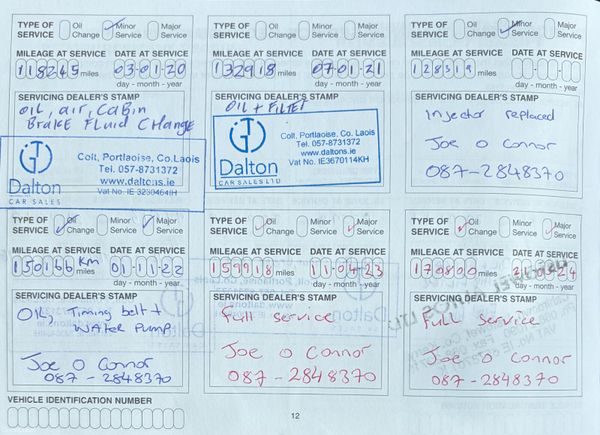 TYPE OF SERVICE Oil Change Minor Service Major Service
MILEAGE AT SERVICE DATE AT SERVICE
118245 miles 03-01-20
day - month - year
SERVICING DEALER'S STAMP
OIL, air, CABIN
BRAKE FLUID CHANGE
Dalton
CAR SALES
Colt, Portlaoise, Co.Laois
Tel. 057-8731372
www.daltons.ie
Vat No. IE 3239464IH
TYPE OF SERVICE Oil Change Minor Service Major Service
MILEAGE AT SERVICE DATE AT SERVICE
132918 miles 07-01-21
day - month - year
SERVICING DEALER'S STAMP
OIL + FILTER
Dalton
CAR SALES LTD
Colt, Portlaoise, Co. Laois
Tel. 057-8731372
www.daltons.ie
Vat No. IE3670114KH
TYPE OF SERVICE Oil Change Minor Service Major Service
MILEAGE AT SERVICE DATE AT SERVICE
128319 miles
day - month - year
SERVICING DEALER'S STAMP
Injector replaced
Joe O Connor
087-2848370
TYPE OF SERVICE Oil Change Minor Service Major Service
MILEAGE AT SERVICE DATE AT SERVICE
150166 KM miles 01-11-22
day - month - year
SERVICING DEALER'S STAMP
OIL, Timing belt +
WATER PUMP
Joe O Connor
087-2848370
TYPE OF SERVICE Oil Change Minor Service Major Service
MILEAGE AT SERVICE DATE AT SERVICE
159918 miles 11-04-23
day - month - year
SERVICING DEALER'S STAMP
Full service
Joe O Connor
087-2848370
TYPE OF SERVICE Oil Change Minor Service Major Service
MILEAGE AT SERVICE DATE AT SERVICE
170800 miles
day - month - year
SERVICING DEALER'S STAMP
FULL service
Joe O Connor
087-2848370
VEHICLE IDENTIFICATION NUMBER
12